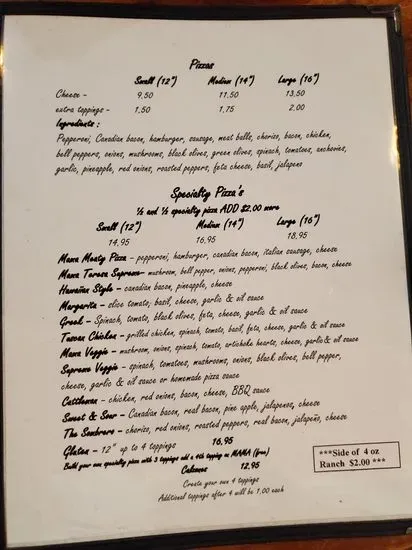 Pizzas
Small (12") Medium (14") Large (16")
Cheese - 9.50 11.50 13.50
extra toppings - 1.50 1.75 2.00
Ingredients :
Pepperoni, Canadian bacon, hamburger, sausage, meat balls, choriso, bacon, chicken,
bell peppers, onions, mushrooms, black olives, green olives, spinach, tomatoes, anchories,
garlic, pineapple, red onions, roasted peppers, feta cheese, basil, jalapeno
Specialty Pizza's
½ and ½ specialty pizza ADD $2.00 more
Small (12") Medium (14") Large (16")
14.95 16.95 18.95
Mama Meaty Pizza - pepperoni, hamburger, canadian bacon, italian sausage, cheese
Mama Teresa Supreme- mushroom, bell pepper, onions, pepperoni, black olives, bacon, cheese
Hawaiian Style - canadian bacon, pineapple, cheese
Margarita - slice tomato, basil, cheese, garlic & oil sauce
Greek - Spinach, tomato, black olives, feta, cheese, garlic & oil sauce
Tuscan Chicken - grilled chicken, spinach, tomato, basil, feta, cheese, garlic & oil sauce
Mama Veggie - mushroom, onions, spinach, tomato, artichoke hearts, cheese, garlic & oil sauce
Supreme Veggie - spinach, tomatoes, mushrooms, onions, black olives, bell pepper,
cheese, garlic & oil sauce or homemade pizza sauce
Cattleman - chicken, red onions, bacon, cheese, BBQ sauce
Sweet & Sour - Canadian bacon, real bacon, pine apple, jalapenos, cheese
The Sombrero - choriso, red onions, roasted peppers, real bacon, jalapeño, cheese
Gluten - 12" up to 4 toppings 16.95
Build your own specialty pizza with 3 toppings add a 4th topping on MAMA (free)
Calzones 12.95
Create your own 4 toppings
Additional toppings after 4 will be 1.00 each
***Side of 4 oz
Ranch $2.00 ***